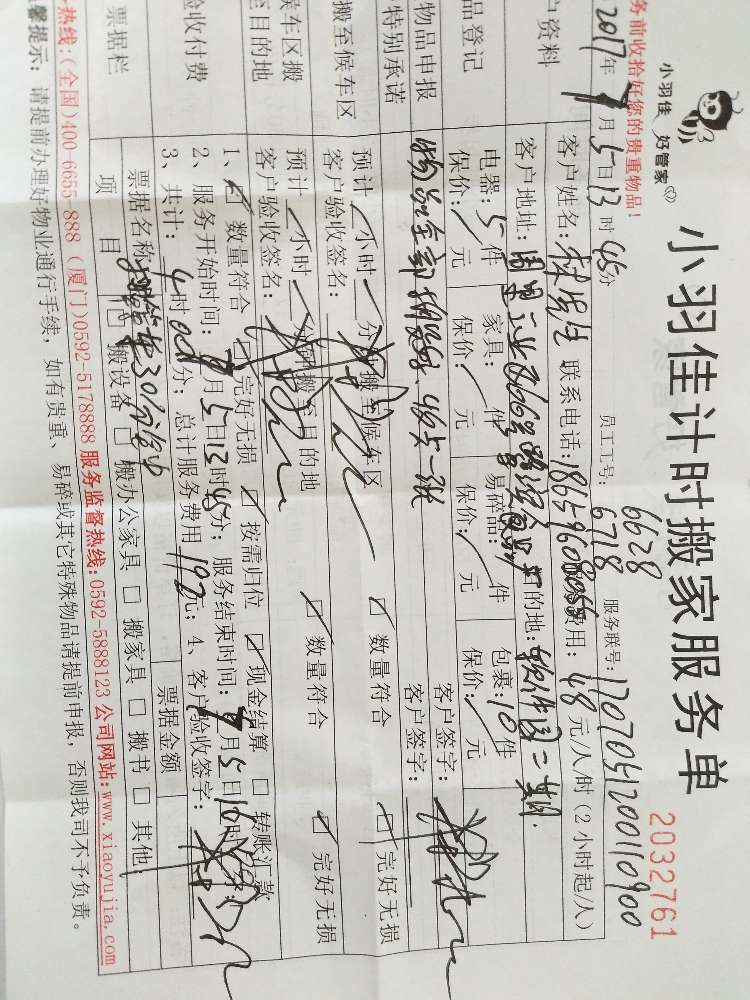 小羽佳 好管家
小羽佳计时搬家服务单
2032761
务前收拾好您的贵重物品!
员工工号: 6628 6718
服务联号: 1707051200110900
2017年 月5日13时45分
户资料
客户姓名: 林先生 联系电话: 费用: 48元/人/时(2小时起/人)
客户地址: 目的地: 软件园二期
品登记
电器: 5件 家具: 件 易碎品: 件 包裹: 10件
保价: / 元 保价: / 元 保价: / 元 保价: / 元
物品申报
特别承诺
客户签字:
客户签字:
搬至候车区
预计 小时 分钟搬至候车区 ☑ 数量符合 ☑ 完好无损
客户验收签名:
候车区搬
至目的地
预计 小时 分钟搬至目的地 ☑ 数量符合 ☑ 完好无损
客户验收签名:
验收付费
1、☑ 数量符合 ☑ 完好无损 ☑ 按需归位 ☑ 现金结算 □ 转账汇款
2、服务开始时间: 月5日13时45分; 服务结束时间: 月5日
3、共计: 4时 分; 总计服务费用 192元; 4、客户验收签字:
票据栏
票据名称 票据金额
项目 □ 搬设备 □ 搬办公家具 □ 搬家具 □ 搬书 □ 其他:
热线:(全国)400-6655-888 (厦门)0592-5178888 服务监督热线:0592-5888123 公司网站:www.xiaoyujia.com
馨提示: 请提前办理好物业通行手续, 如有贵重、易碎或其它特殊物品请提前申报, 否则我司不予负责。